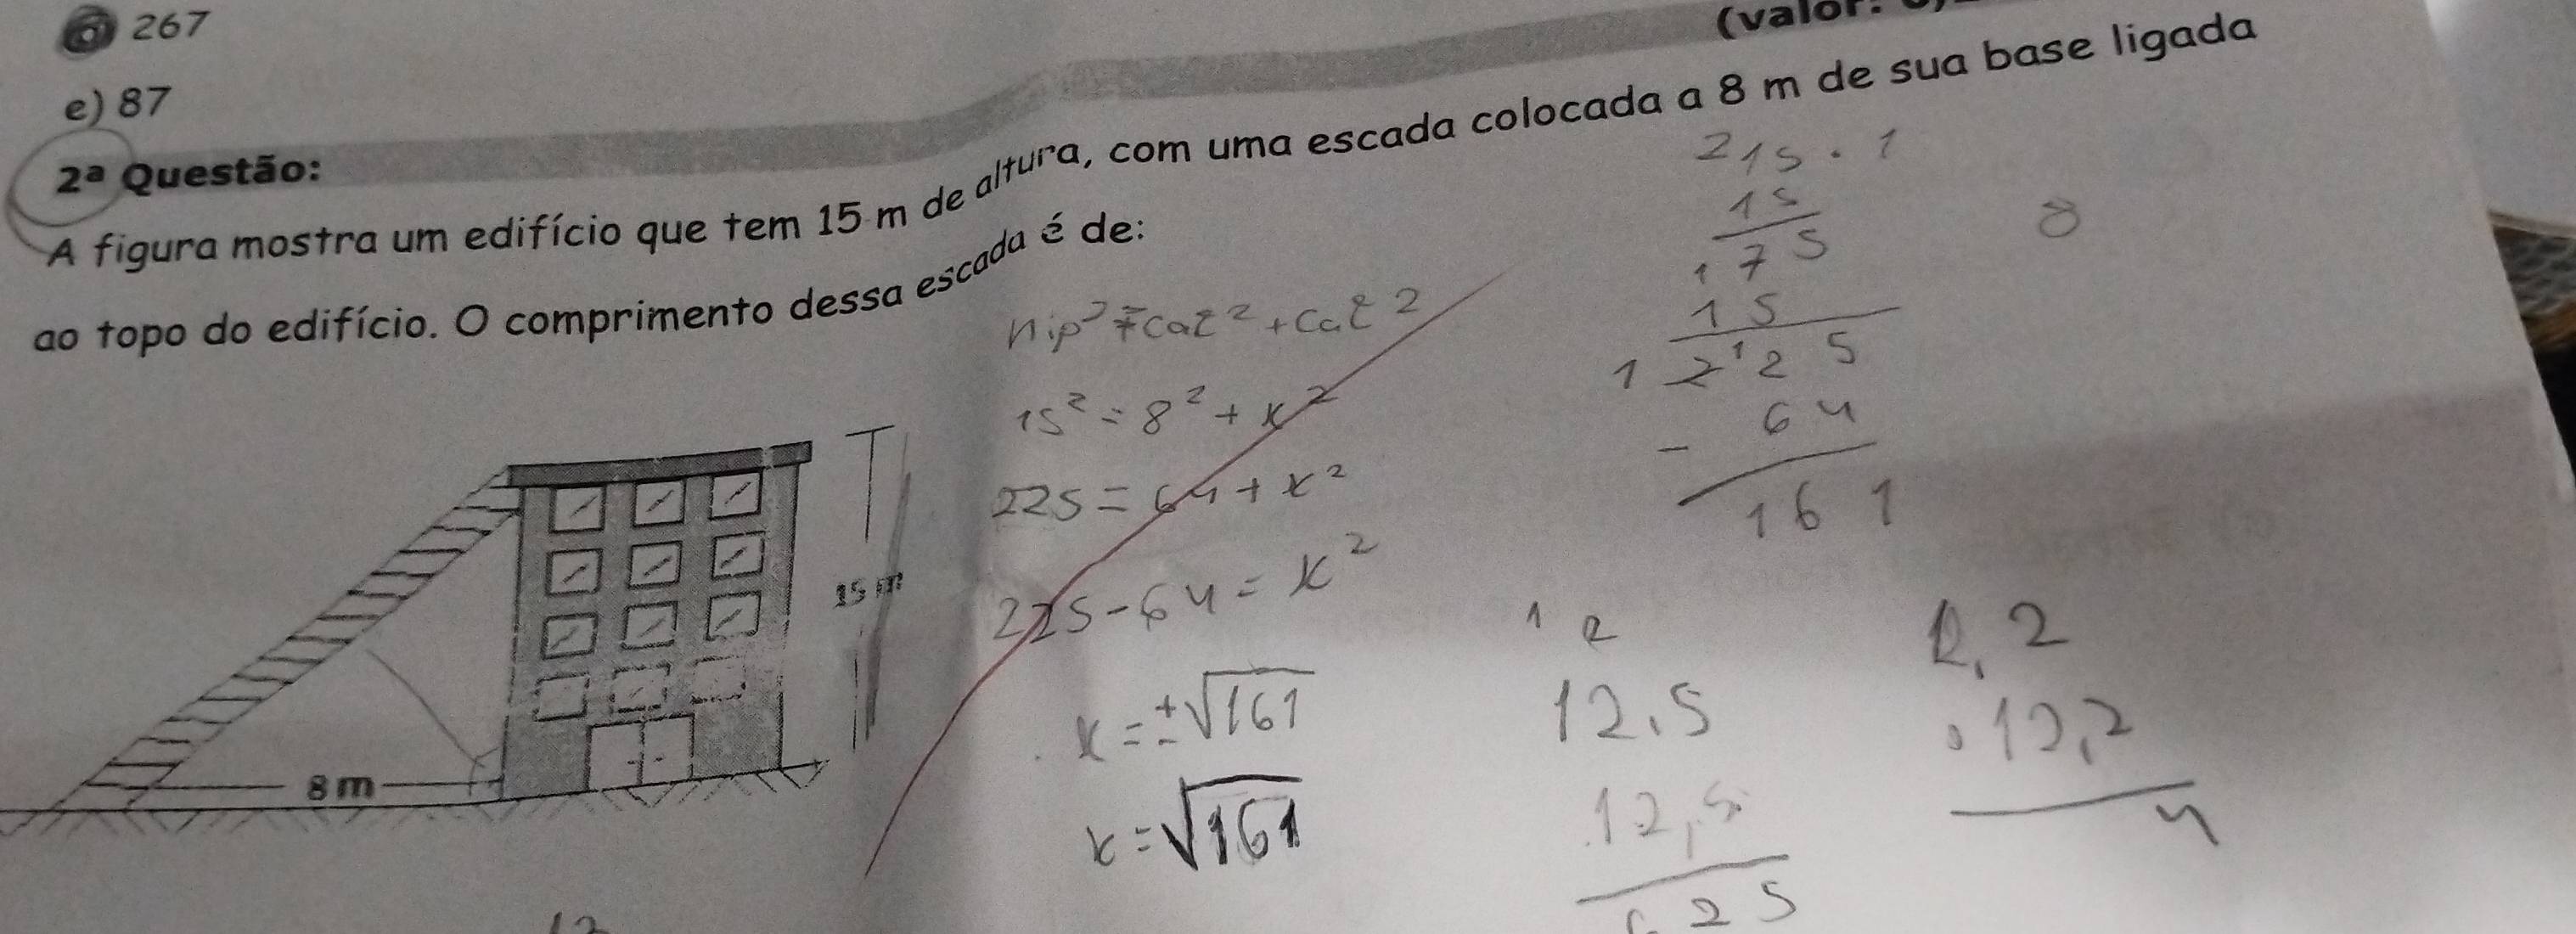 d) 267
(valor:
e) 87
2ª Questão:
A figura mostra um edifício que tem 15 m de altura, com uma escada colocada a 8 m de sua base ligada
ao topo do edifício. O comprimento dessa escada é de:
hip² = cat² + cat²
15² = 8² + x²
225 = 64 + x²
225 - 64 = x²
x = ±√161
x = √161
15 m
8 m
15
15
175
15
225
- 64
161
8
12,5
12,5
625
12,2
4